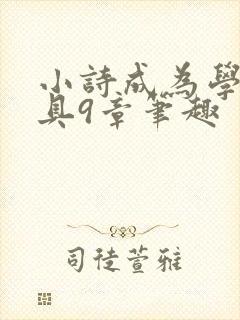 小詩成為學
具9章筆趣
司徒萱雅